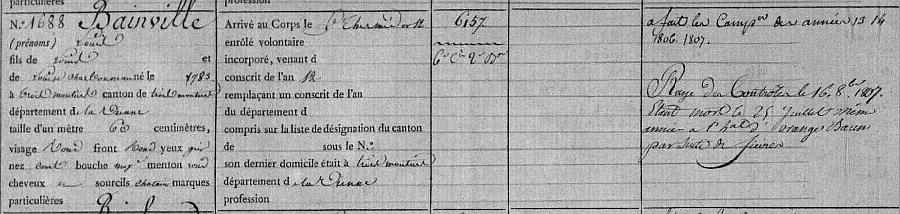 particulières
profession
N.º 1688 Bainville
(prénoms) Louis
fils de Louis et
de Louise Charbonneau né le 1783
à trois moutier canton de trois moutier
département de la Vienne
taille d'un mètre 60 centimètres,
visage rond front rond yeux gris
nez court bouche moy. menton rond
cheveux sourcils chatain marques
particulières
Arrivé au Corps le Thermidor
enrôlé volontaire
incorporé, venant d
conscrit de l'an
remplaçant un conscrit de l'an
du département d
compris sur la liste de désignation du canton
de sous le N.º
son dernier domicile était à trois moutier
département de la Vienne
profession
6157
a fait les Camp.es des années 13 14
1806. 1807.
Rayé des Controles le 16 8.bre 1807.
Etant mort le 25 Juillet même
année a l' d'orange Baum
par suite de fievres